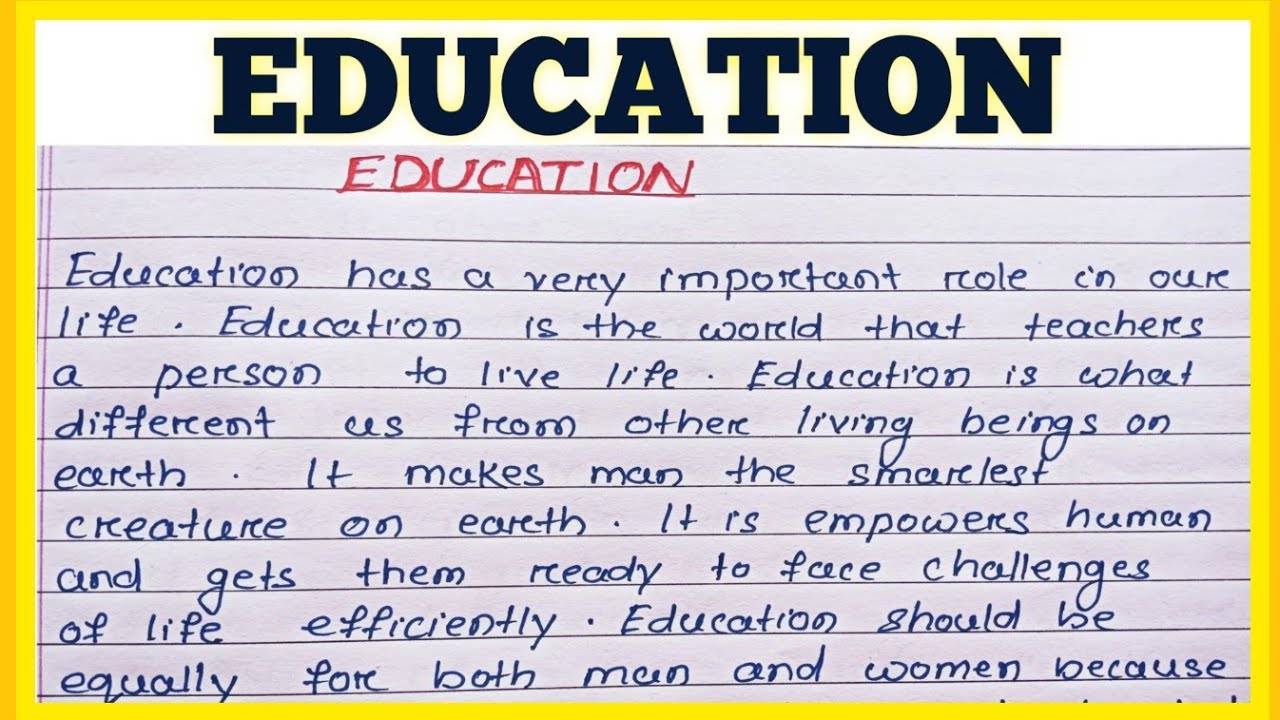 EDUCATION
EDUCATION
Education has a very important role in our
life. Education is the world that teachers
a person to live life. Education is what
different us from other living beings on
earth. It makes man the smarlest
creature on earth. It is empowers human
and gets them ready to face challenges
of life efficiently. Education should be
equally for both man and women because